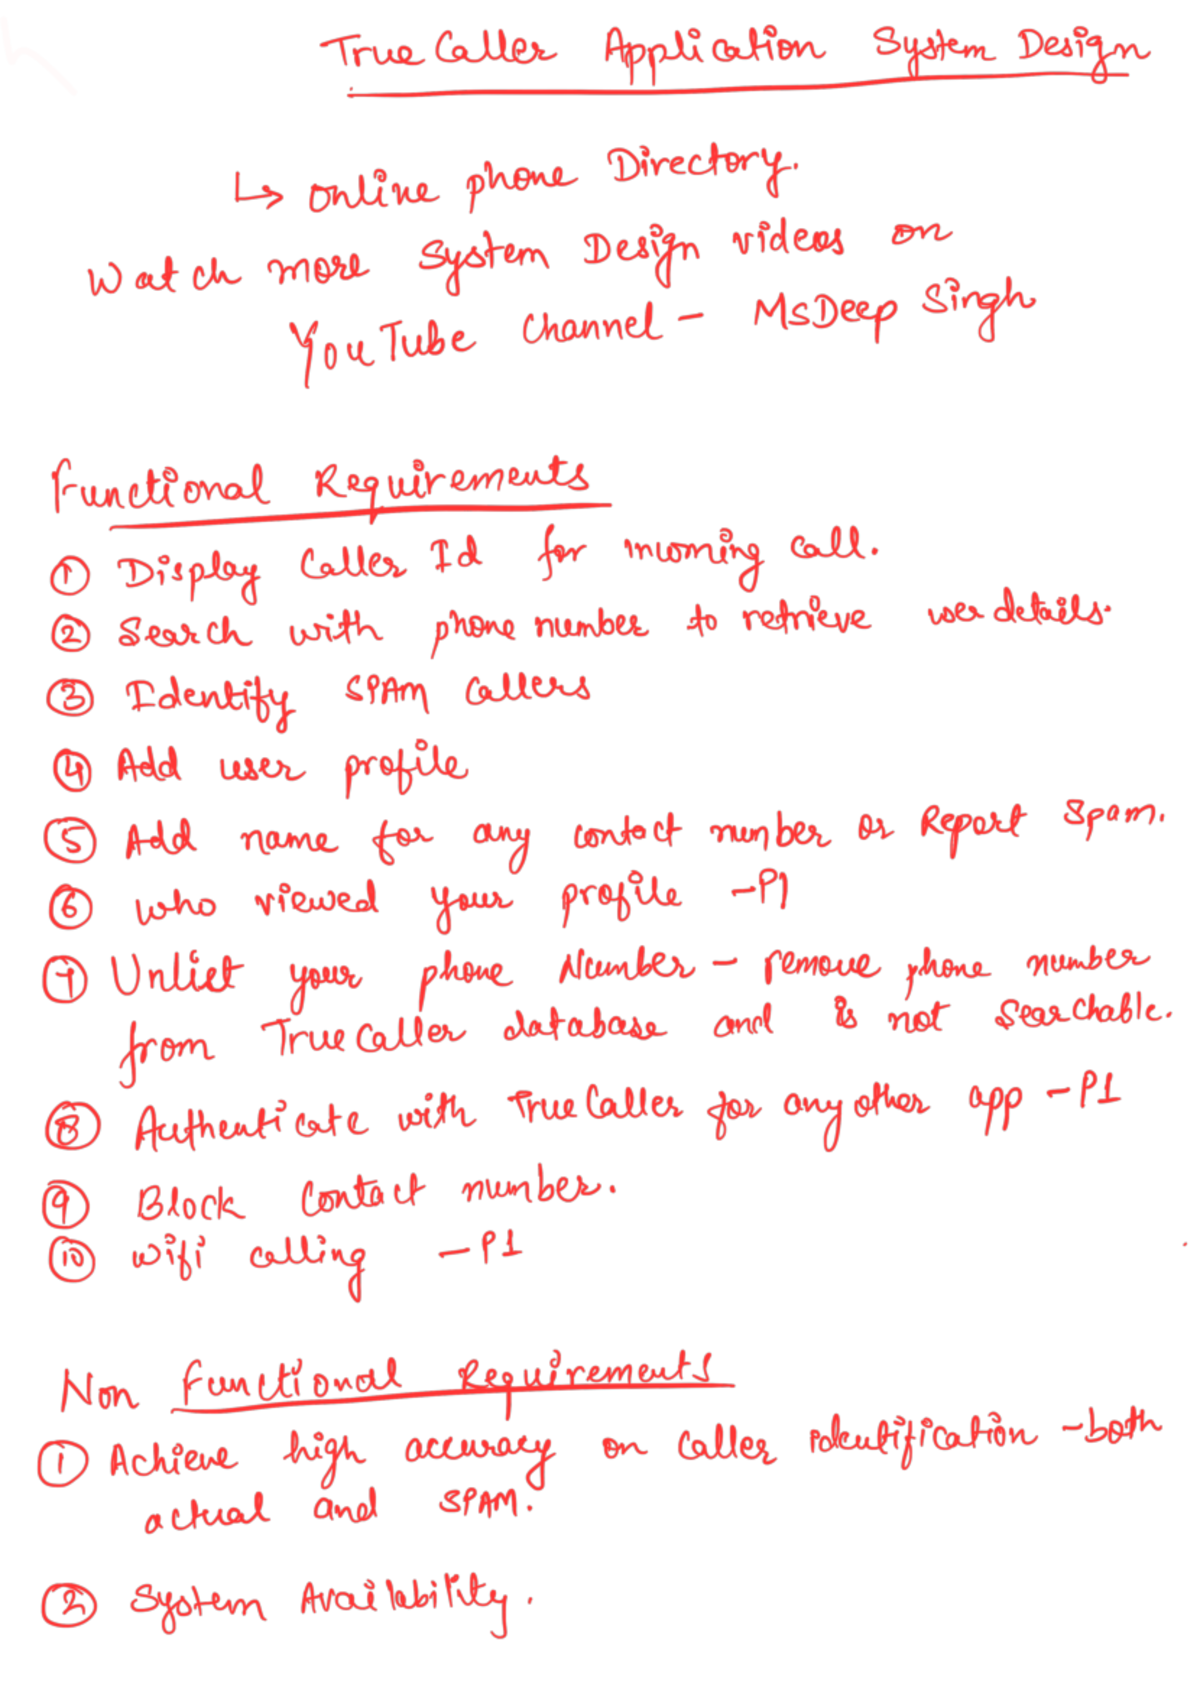 TrueCaller Application System Design
↳ online phone Directory.
Watch more System Design videos on
YouTube Channel - MsDeep Singh
Functional Requirements
① Display Caller Id for incoming call.
② Search with phone number to retrieve user details.
③ Identify SPAM Callers
④ Add user profile
⑤ Add name for any contact number or Report Spam.
⑥ who viewed your profile - P1
⑦ Unlist your phone Number - remove phone number
from TrueCaller database and is not Searchable.
⑧ Authenticate with TrueCaller for any other app - P1
⑨ Block Contact number.
⑩ wifi calling - P1
Non Functional Requirements
① Achieve high accuracy on Caller identification - both
actual and SPAM.
② System Availability.